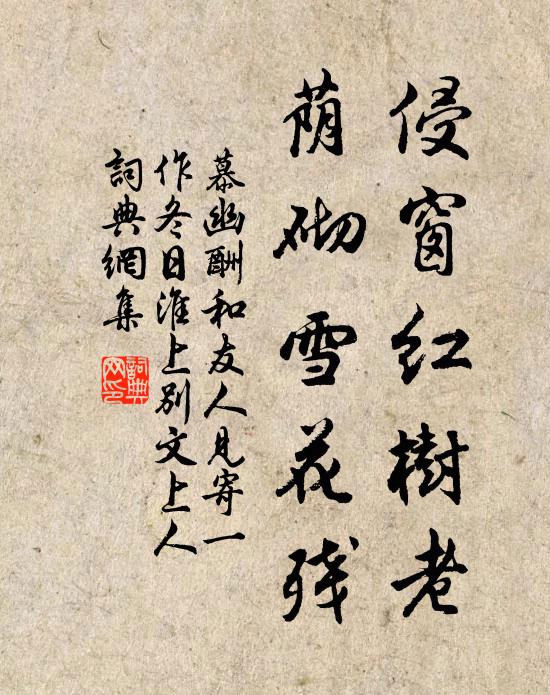 侵窗红樹老
荫砌雪花残
慕幽酬和友人見寄一
作冬日淮上别文上人
詞典網集
詞典
网印